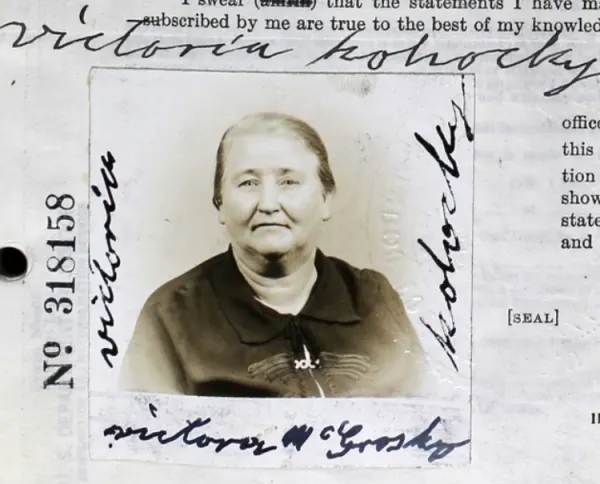 I swear (affirm) that the statements I have ma
subscribed by me are true to the best of my knowled
victoria kohocky
victoria
kohocky
office
this
tion
show
state
and
No 318158
[SEAL]
victorar McGrosky